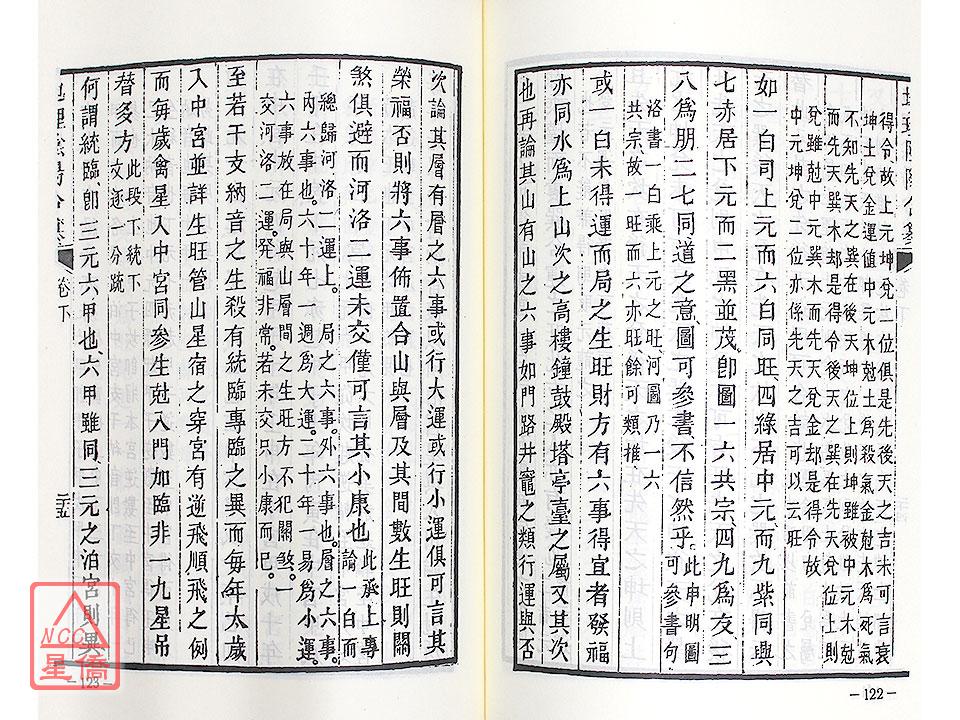 得令故上元坤兌二位俱是先後天之吉未可言衰
坤土兌金運值中元木尅土爲殺氣金尅木爲死氣
不知先天之巽在後天坤位上則坤雖被中元木尅
而先天巽木却是得令後天之巽在先天兌位上則
兌雖尅中元巽木而先天兌金却是得令故
中元坤兌二位亦係先天之吉可以云旺
如一白司上元而六白同旺、四綠居中元、而九紫同興
七赤居下元而二黑並茂、卽圖一六共宗、四九爲友、三
八爲朋二七同道之意圖可參書不信然乎。此申明圖
可參書句
洛書一白乘上元之旺、河圖乃一六
共宗故一旺而六亦旺、餘可類推、
或一白未得運而局之生旺財方有六事得宜者發福
亦同水爲上山次之高樓鐘鼓殿塔亭臺之屬又其次
也再論其山有山之六事如門路井竈之類行運與否
－122－
次論其層有層之六事或行大運或行小運俱可言其
榮福否則將六事佈置合山與層及其間數生旺則關
煞俱避而河洛二運未交僅可言其小康也此承上專
論一白而
總歸河洛二運上。局之六事。外六事也。層之六事。
內六事也。六十年一週爲大運。二十年一易爲小運。
六事放在局與山層間之生旺方不犯關煞。一
交河洛二運。發福非常。若未交只小康而已。
至若干支納音之生殺有統臨專臨之異而每年太歲
入中宮並詳生旺管山星宿之穿宮有逆飛順飛之例
而每歲禽星入中宮同參生尅入門加臨非一九星吊
替多方此段下統下
文逐一分疏
何謂統臨、卽三元六甲也、六甲雖同、三元之泊宮則異
卷下
二十五
－123－
NCC
星僑